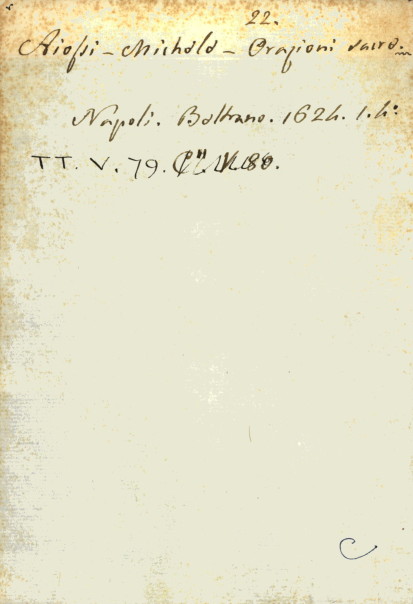 22.
Aiossi - Michele - Orazioni sacre
Napoli. Beltrano. 1624. 1. 4:
TT. V. 79.